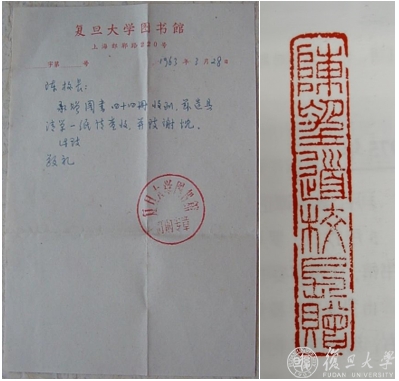 复旦大学图书館
上海邯郸路220号
字第 号 1963年3月28日
陈校长：
惠赠图书四十四册收到，兹造具
清单一纸请查收，并致谢忱。
此致
敬礼
复旦大学图书馆
陳望道校長贈
復旦大學
FUDAN UNIVERSITY